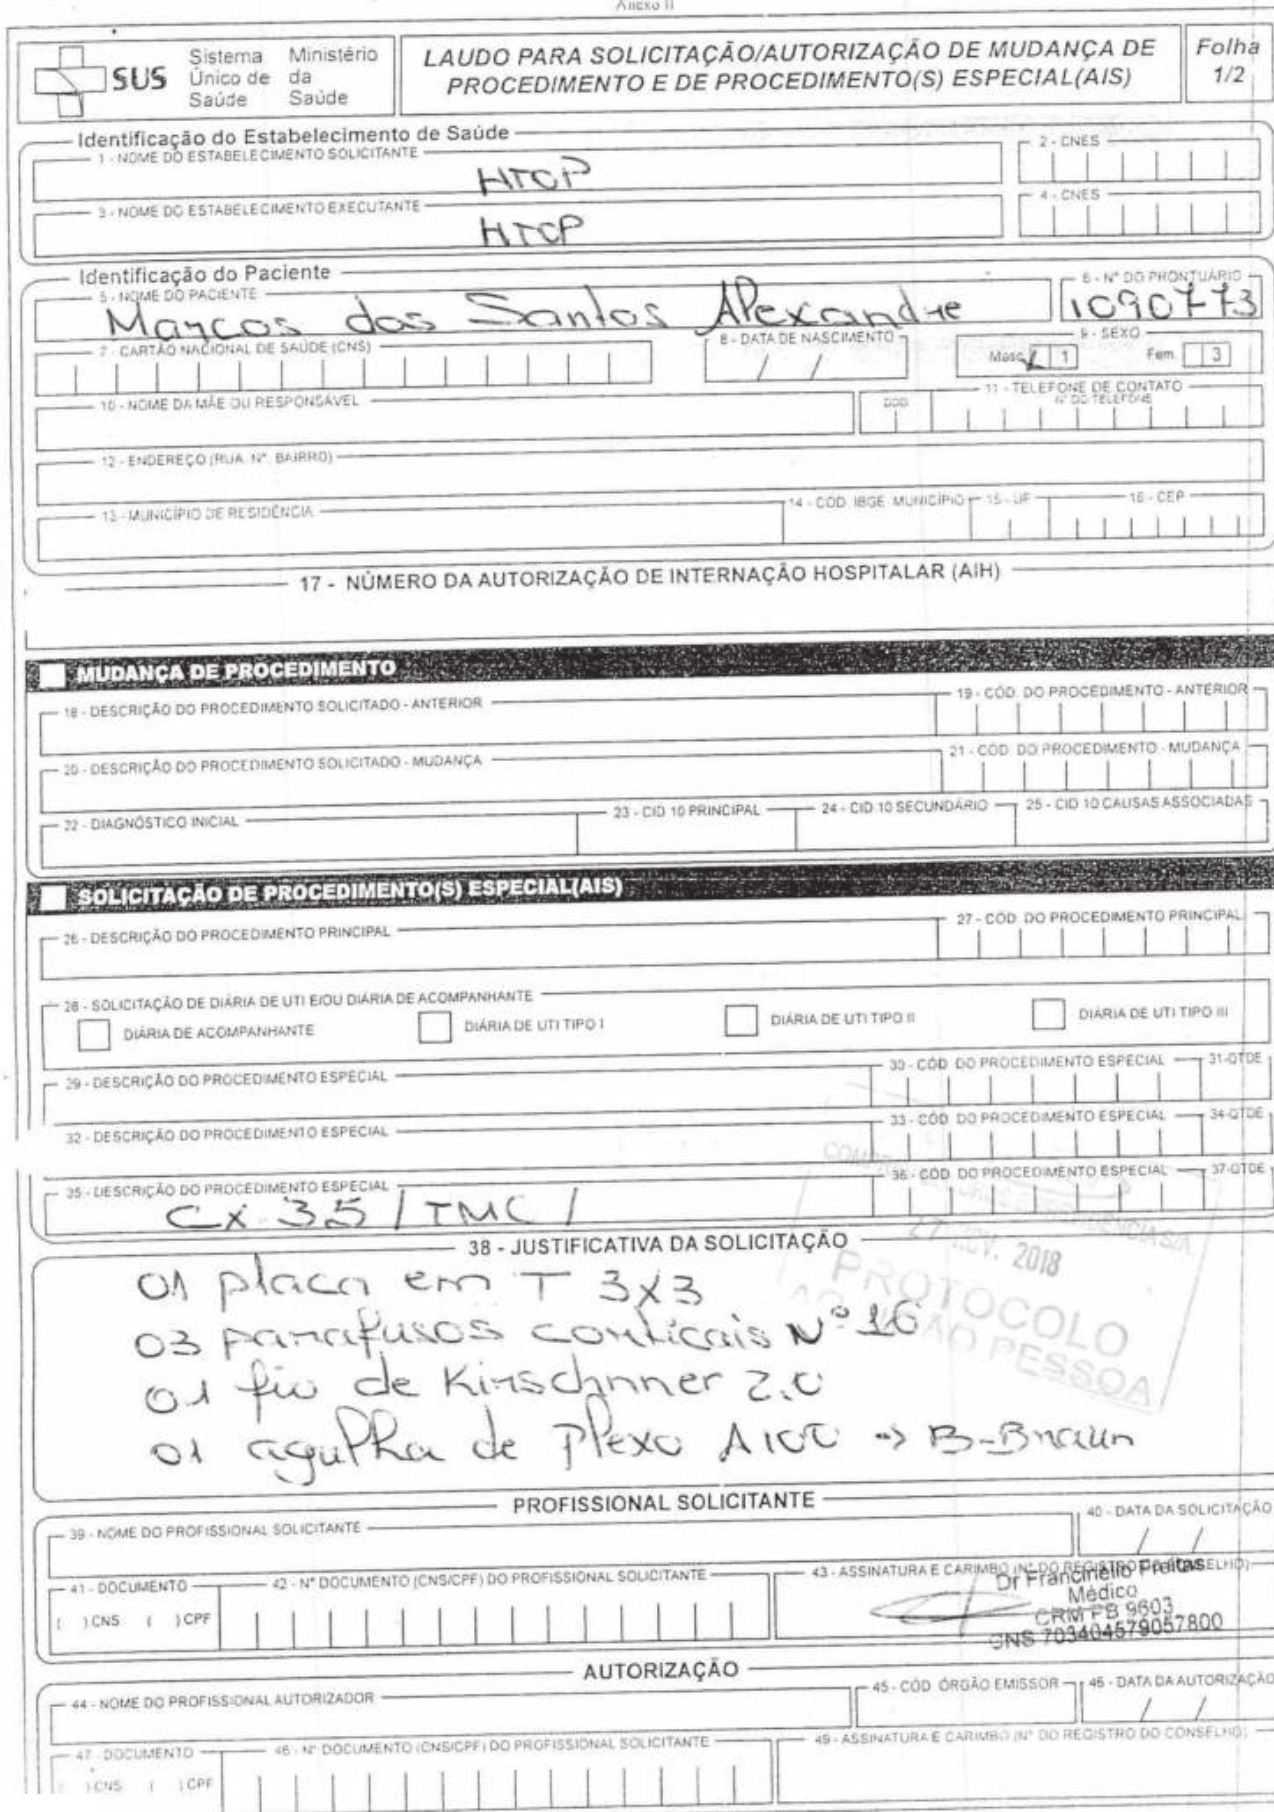 Anexo II
SUS Sistema Único de Saúde Ministério da Saúde
LAUDO PARA SOLICITAÇÃO/AUTORIZAÇÃO DE MUDANÇA DE PROCEDIMENTO E DE PROCEDIMENTO(S) ESPECIAL(AIS)
Folha 1/2
Identificação do Estabelecimento de Saúde
1 - NOME DO ESTABELECIMENTO SOLICITANTE 2 - CNES
HTOP
3 - NOME DO ESTABELECIMENTO EXECUTANTE 4 - CNES
HTOP
Identificação do Paciente
5 - NOME DO PACIENTE 6 - N° DO PRONTUÁRIO
Marcos dos Santos Alexandre 1090773
7 - CARTÃO NACIONAL DE SAÚDE (CNS) 8 - DATA DE NASCIMENTO 9 - SEXO
/ / Masc. 1 Fem. 3
10 - NOME DA MÃE OU RESPONSÁVEL DDD 11 - TELEFONE DE CONTATO
N° DO TELEFONE
12 - ENDEREÇO (RUA, N°, BAIRRO)
13 - MUNICÍPIO DE RESIDÊNCIA 14 - CÓD. IBGE MUNICÍPIO 15 - UF 16 - CEP
17 - NÚMERO DA AUTORIZAÇÃO DE INTERNAÇÃO HOSPITALAR (AIH)
MUDANÇA DE PROCEDIMENTO
18 - DESCRIÇÃO DO PROCEDIMENTO SOLICITADO - ANTERIOR 19 - CÓD. DO PROCEDIMENTO - ANTERIOR
20 - DESCRIÇÃO DO PROCEDIMENTO SOLICITADO - MUDANÇA 21 - CÓD. DO PROCEDIMENTO - MUDANÇA
22 - DIAGNÓSTICO INICIAL 23 - CID 10 PRINCIPAL 24 - CID 10 SECUNDÁRIO 25 - CID 10 CAUSAS ASSOCIADAS
SOLICITAÇÃO DE PROCEDIMENTO(S) ESPECIAL(AIS)
26 - DESCRIÇÃO DO PROCEDIMENTO PRINCIPAL 27 - CÓD. DO PROCEDIMENTO PRINCIPAL
28 - SOLICITAÇÃO DE DIÁRIA DE UTI E/OU DIÁRIA DE ACOMPANHANTE
DIÁRIA DE ACOMPANHANTE DIÁRIA DE UTI TIPO I DIÁRIA DE UTI TIPO II DIÁRIA DE UTI TIPO III
29 - DESCRIÇÃO DO PROCEDIMENTO ESPECIAL 30 - CÓD. DO PROCEDIMENTO ESPECIAL 31-QTDE
32 - DESCRIÇÃO DO PROCEDIMENTO ESPECIAL 33 - CÓD. DO PROCEDIMENTO ESPECIAL 34-QTDE
35 - DESCRIÇÃO DO PROCEDIMENTO ESPECIAL 36 - CÓD. DO PROCEDIMENTO ESPECIAL 37-QTDE
Cx 35 / TMC /
38 - JUSTIFICATIVA DA SOLICITAÇÃO
2018
PROTOCOLO
JOÃO PESSOA
01 placa em T 3x3
03 parafusos corticais N° 16
01 fio de Kirschnner 2.0
01 agulha de Plexo A100 → B-Braun
PROFISSIONAL SOLICITANTE
39 - NOME DO PROFISSIONAL SOLICITANTE 40 - DATA DA SOLICITAÇÃO
/ /
41 - DOCUMENTO 42 - N° DOCUMENTO (CNS/CPF) DO PROFISSIONAL SOLICITANTE 43 - ASSINATURA E CARIMBO (N° DO REGISTRO DO CONSELHO)
( ) CNS ( ) CPF
Dr Francinélio Freitas
Médico
CRM PB 9603
CNS 703404579057800
AUTORIZAÇÃO
44 - NOME DO PROFISSIONAL AUTORIZADOR 45 - CÓD. ÓRGÃO EMISSOR 46 - DATA DA AUTORIZAÇÃO
/ /
47 - DOCUMENTO 48 - N° DOCUMENTO (CNS/CPF) DO PROFISSIONAL SOLICITANTE 49 - ASSINATURA E CARIMBO (N° DO REGISTRO DO CONSELHO)
( ) CNS ( ) CPF